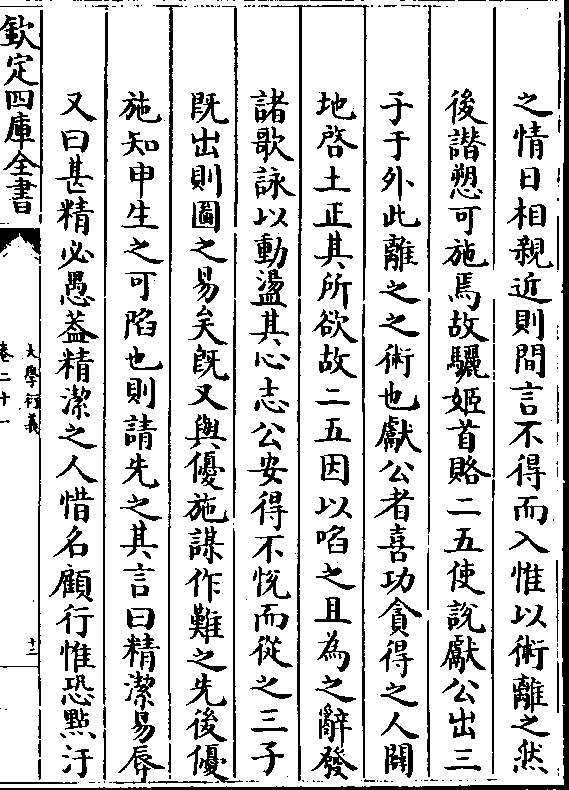 之情日相親近則間言不得而入惟以術離之然
後譖愬可施焉故驪姬首賂二五使説獻公出三
子于外此離之之術也獻公者喜功貪得之人闢
地啓土正其所欲故二五因以啗之且為之辭發
諸歌詠以動盪其心志公安得不悦而從之三子
既出則圖之易矣既又與優施謀作難之先後優
施知申生之可陷也則請先之其言曰精潔易辱
又曰甚精必愚葢精潔之人惜名顧行惟恐㸃汙
欽定四庫全書
大學衍義
卷二十一
十三